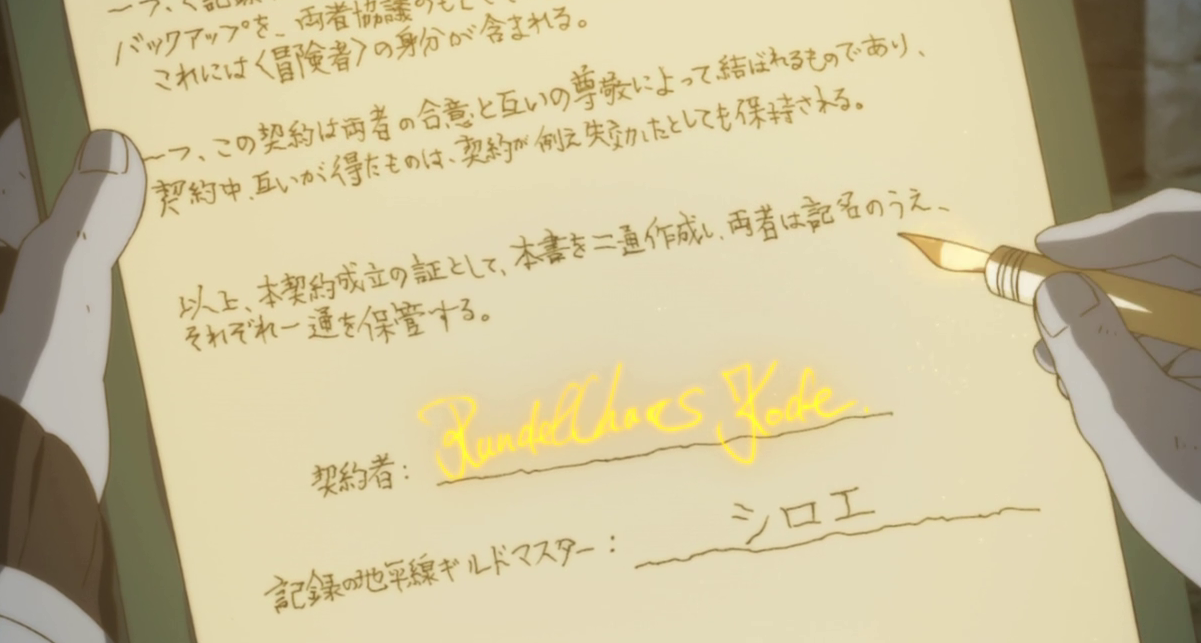 一つ、〈記録
バックアップを、両者協議のもとで
これには〈冒険者〉の身分が含まれる。
一つ、この契約は両者の合意と互いの尊敬によって結ばれるものであり、
契約中、互いが得たものは、契約が例え失効したとしても保持される。
以上、本契約成立の証として、本書を二通作成し、両者は記名のうえ、
それぞれ一通を保管する。
契約者：
記録の地平線ギルドマスター： シロエ